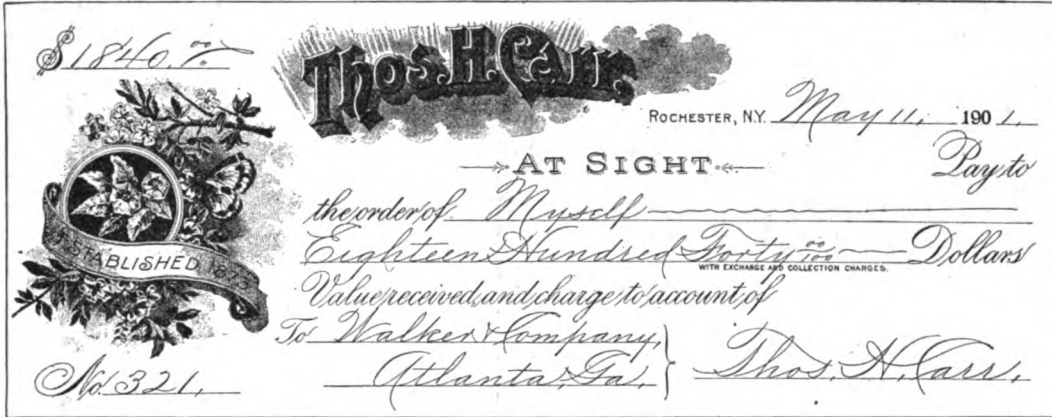 $1840.00/
Thos. H. Carr.
Rochester, N.Y. May 11, 1901.
At Sight
Pay to
the order of Myself
Eighteen Hundred Forty 00/100 Dollars
with exchange and collection charges.
Value received, and charge to account of
To Walker & Company,
Atlanta, Ga.
Thos. H. Carr.
No. 321.
Established